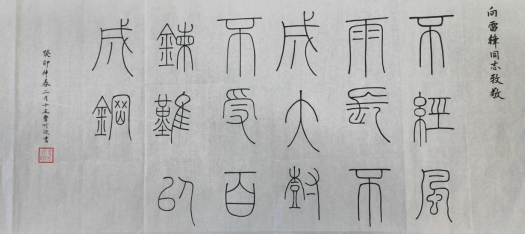 向雷锋同志致敬
不經風
雨長不
成大樹
不受百
鍊難以
成鋼
癸卯仲春二月十五書